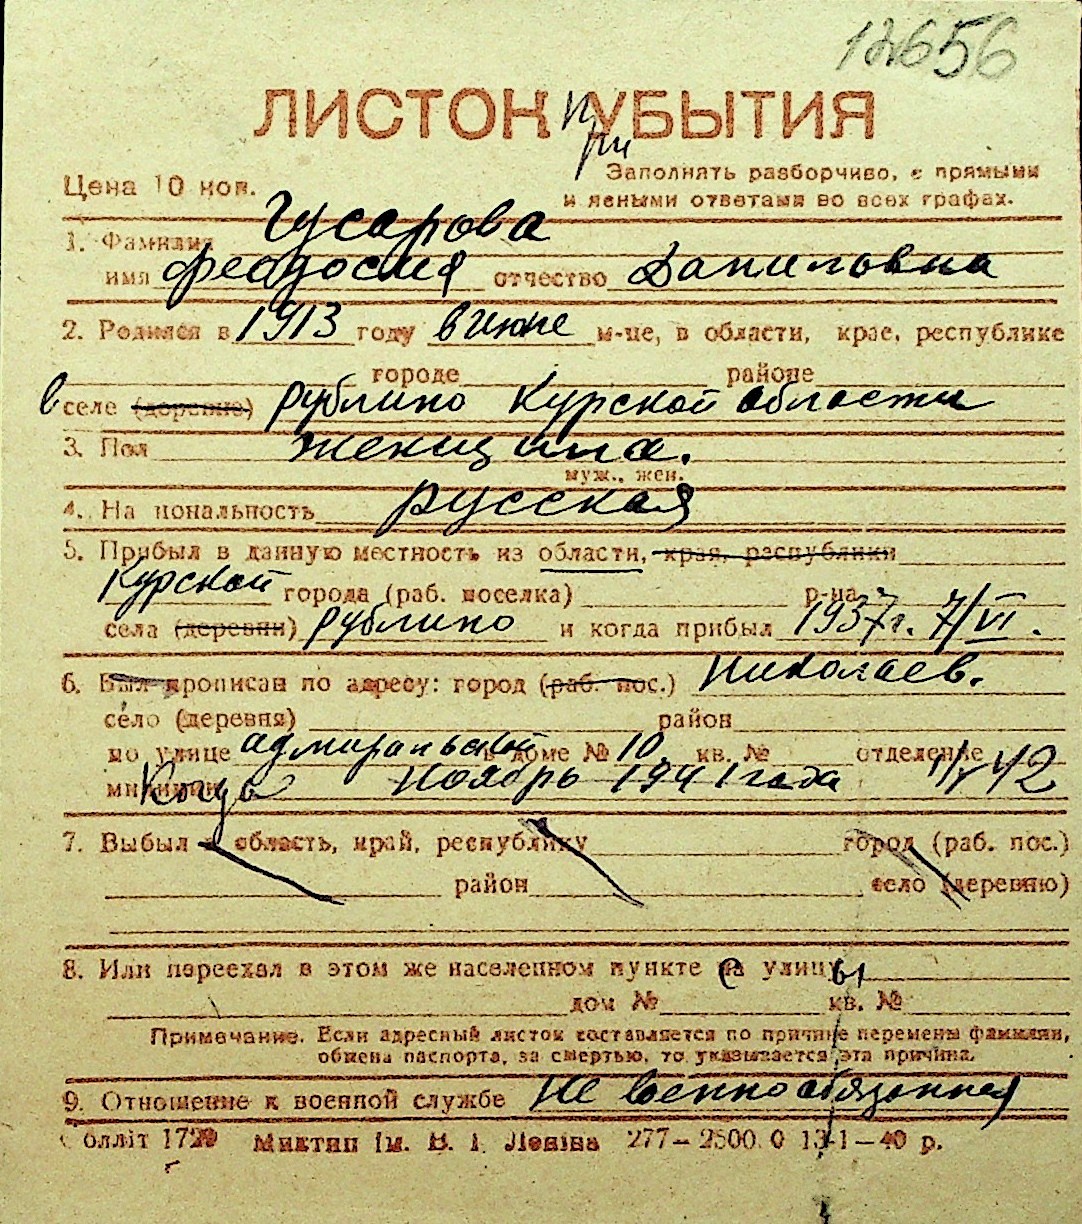 12656
ЛИСТОК УБЫТИЯ
при
Цена 10 коп.
Заполнять разборчиво, с прямыми
и ясными ответами во всех графах.
1. Фамилия Гусарова
имя Феодосия отчество Даниловна
2. Родился в 1913 году в июне м-це, в области, крае, республике
городе районе
в селе (деревне) Рублино Курской области
3. Пол женщина.
муж., жен.
4. Национальность русская
5. Прибыл в данную местность из области, края, республики
Курской города (раб. поселка) р-на
села (деревни) Рублино и когда прибыл 1937г. 7/VI.
6. Был прописан по адресу: город (раб. пос.) Николаев.
село (деревня) район
по улице адмиральской в доме № 10 кв. № отделение
милиции Когда Ноябрь 1941 года 42
7. Выбыл в область, край, республику город (раб. пос.)
район село (деревню)
8. Или переехал в этом же населенном пункте на улицу
дом № кв. №
Примечание. Если адресный листок составляется по причине перемены фамилии,
обмена паспорта, за смертью, то указывается эта причина.
9. Отношение к военной службе Не военнообязанная
Облліт 1729 Миктип Ім. В. І. Леніна 277–2500.0 13-1–40 р.